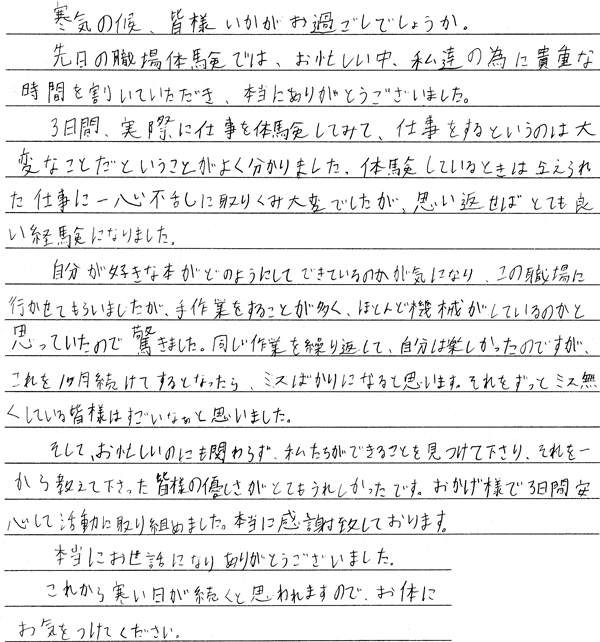 寒気の候、皆様いかがお過ごしでしょうか。
先日の職場体験では、お忙しい中、私達の為に貴重な
時間を割いていただき、本当にありがとうございました。
3日間、実際に仕事を体験してみて、仕事をするというのは大
変なことだということがよく分かりました。体験しているときは与えられ
た仕事に一心不乱に取りくみ大変でしたが、思い返せばとても良
い経験になりました。
自分が好きな本がどのようにしてできているのかが気になり、この職場に
行かせてもらいましたが、手作業をすることが多く、ほとんど機械がしているのかと
思っていたので驚きました。同じ作業を繰り返して、自分は楽しかったのですが、
これを1ヶ月続けてするとなったら、ミスばかりになると思います。それをずっとミス無
くしている皆様はすごいなぁと思いました。
そして、お忙しいのにも関わらず、私たちができることを見つけて下さり、それを一
から教えて下さった皆様の優しさがとてもうれしかったです。おかげ様で3日間安
心して活動に取り組めました。本当に感謝致しております。
本当にお世話になりありがとうございました。
これから寒い日が続くと思われますので、お体に
お気をつけてください。